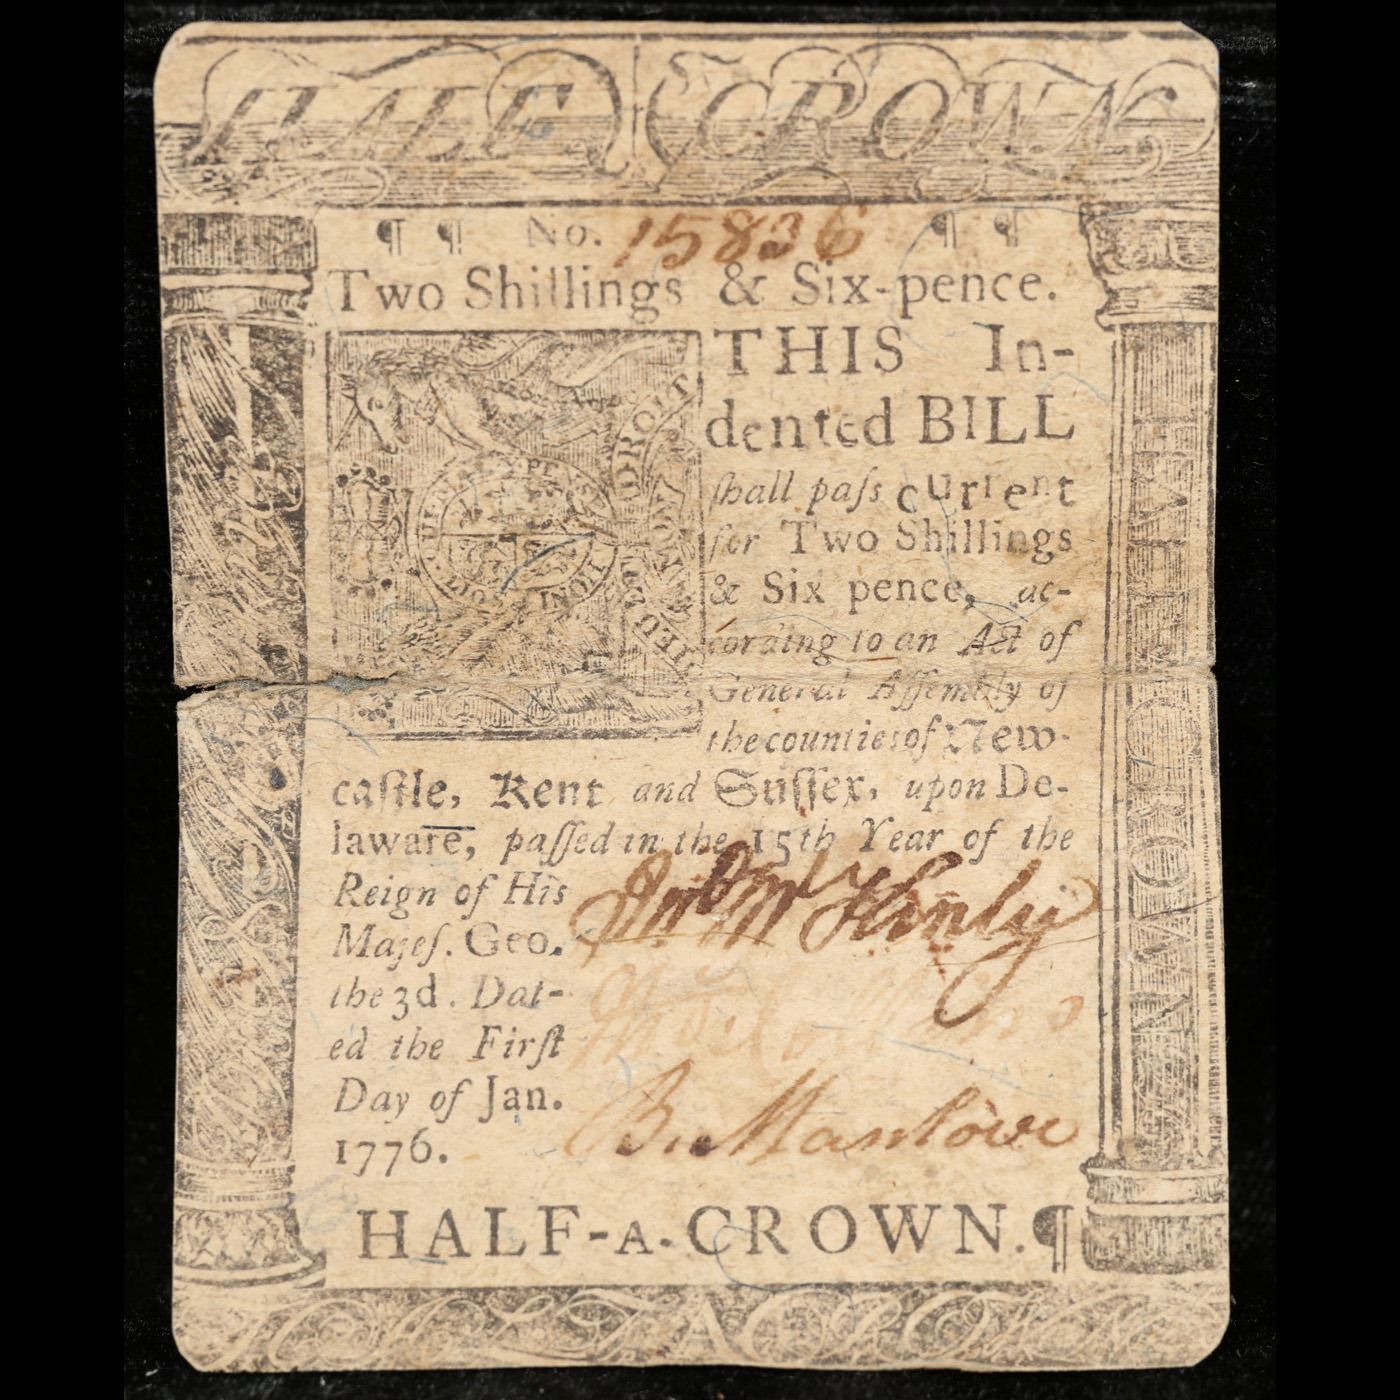 HALF CROWN
¶ ¶ No. 15836 ¶ ¶
Two Shillings & Six-pence.
THIS In-
dented BILL
ſhall paſs current
for Two Shillings
& Six pence, ac-
cording to an Act of
General Aſſembly of
the counties of New-
caſtle, Kent and Suſſex, upon De-
laware, paſſed in the 15th Year of the
Reign of His
Majeſ. Geo.
the 3d. Dat-
ed the Firſt
Day of Jan.
1776.
Jno McKinly
B. Manlove
HALF-A-CROWN.¶
DIEU ET MON DROIT
HONI
HALF CROWN